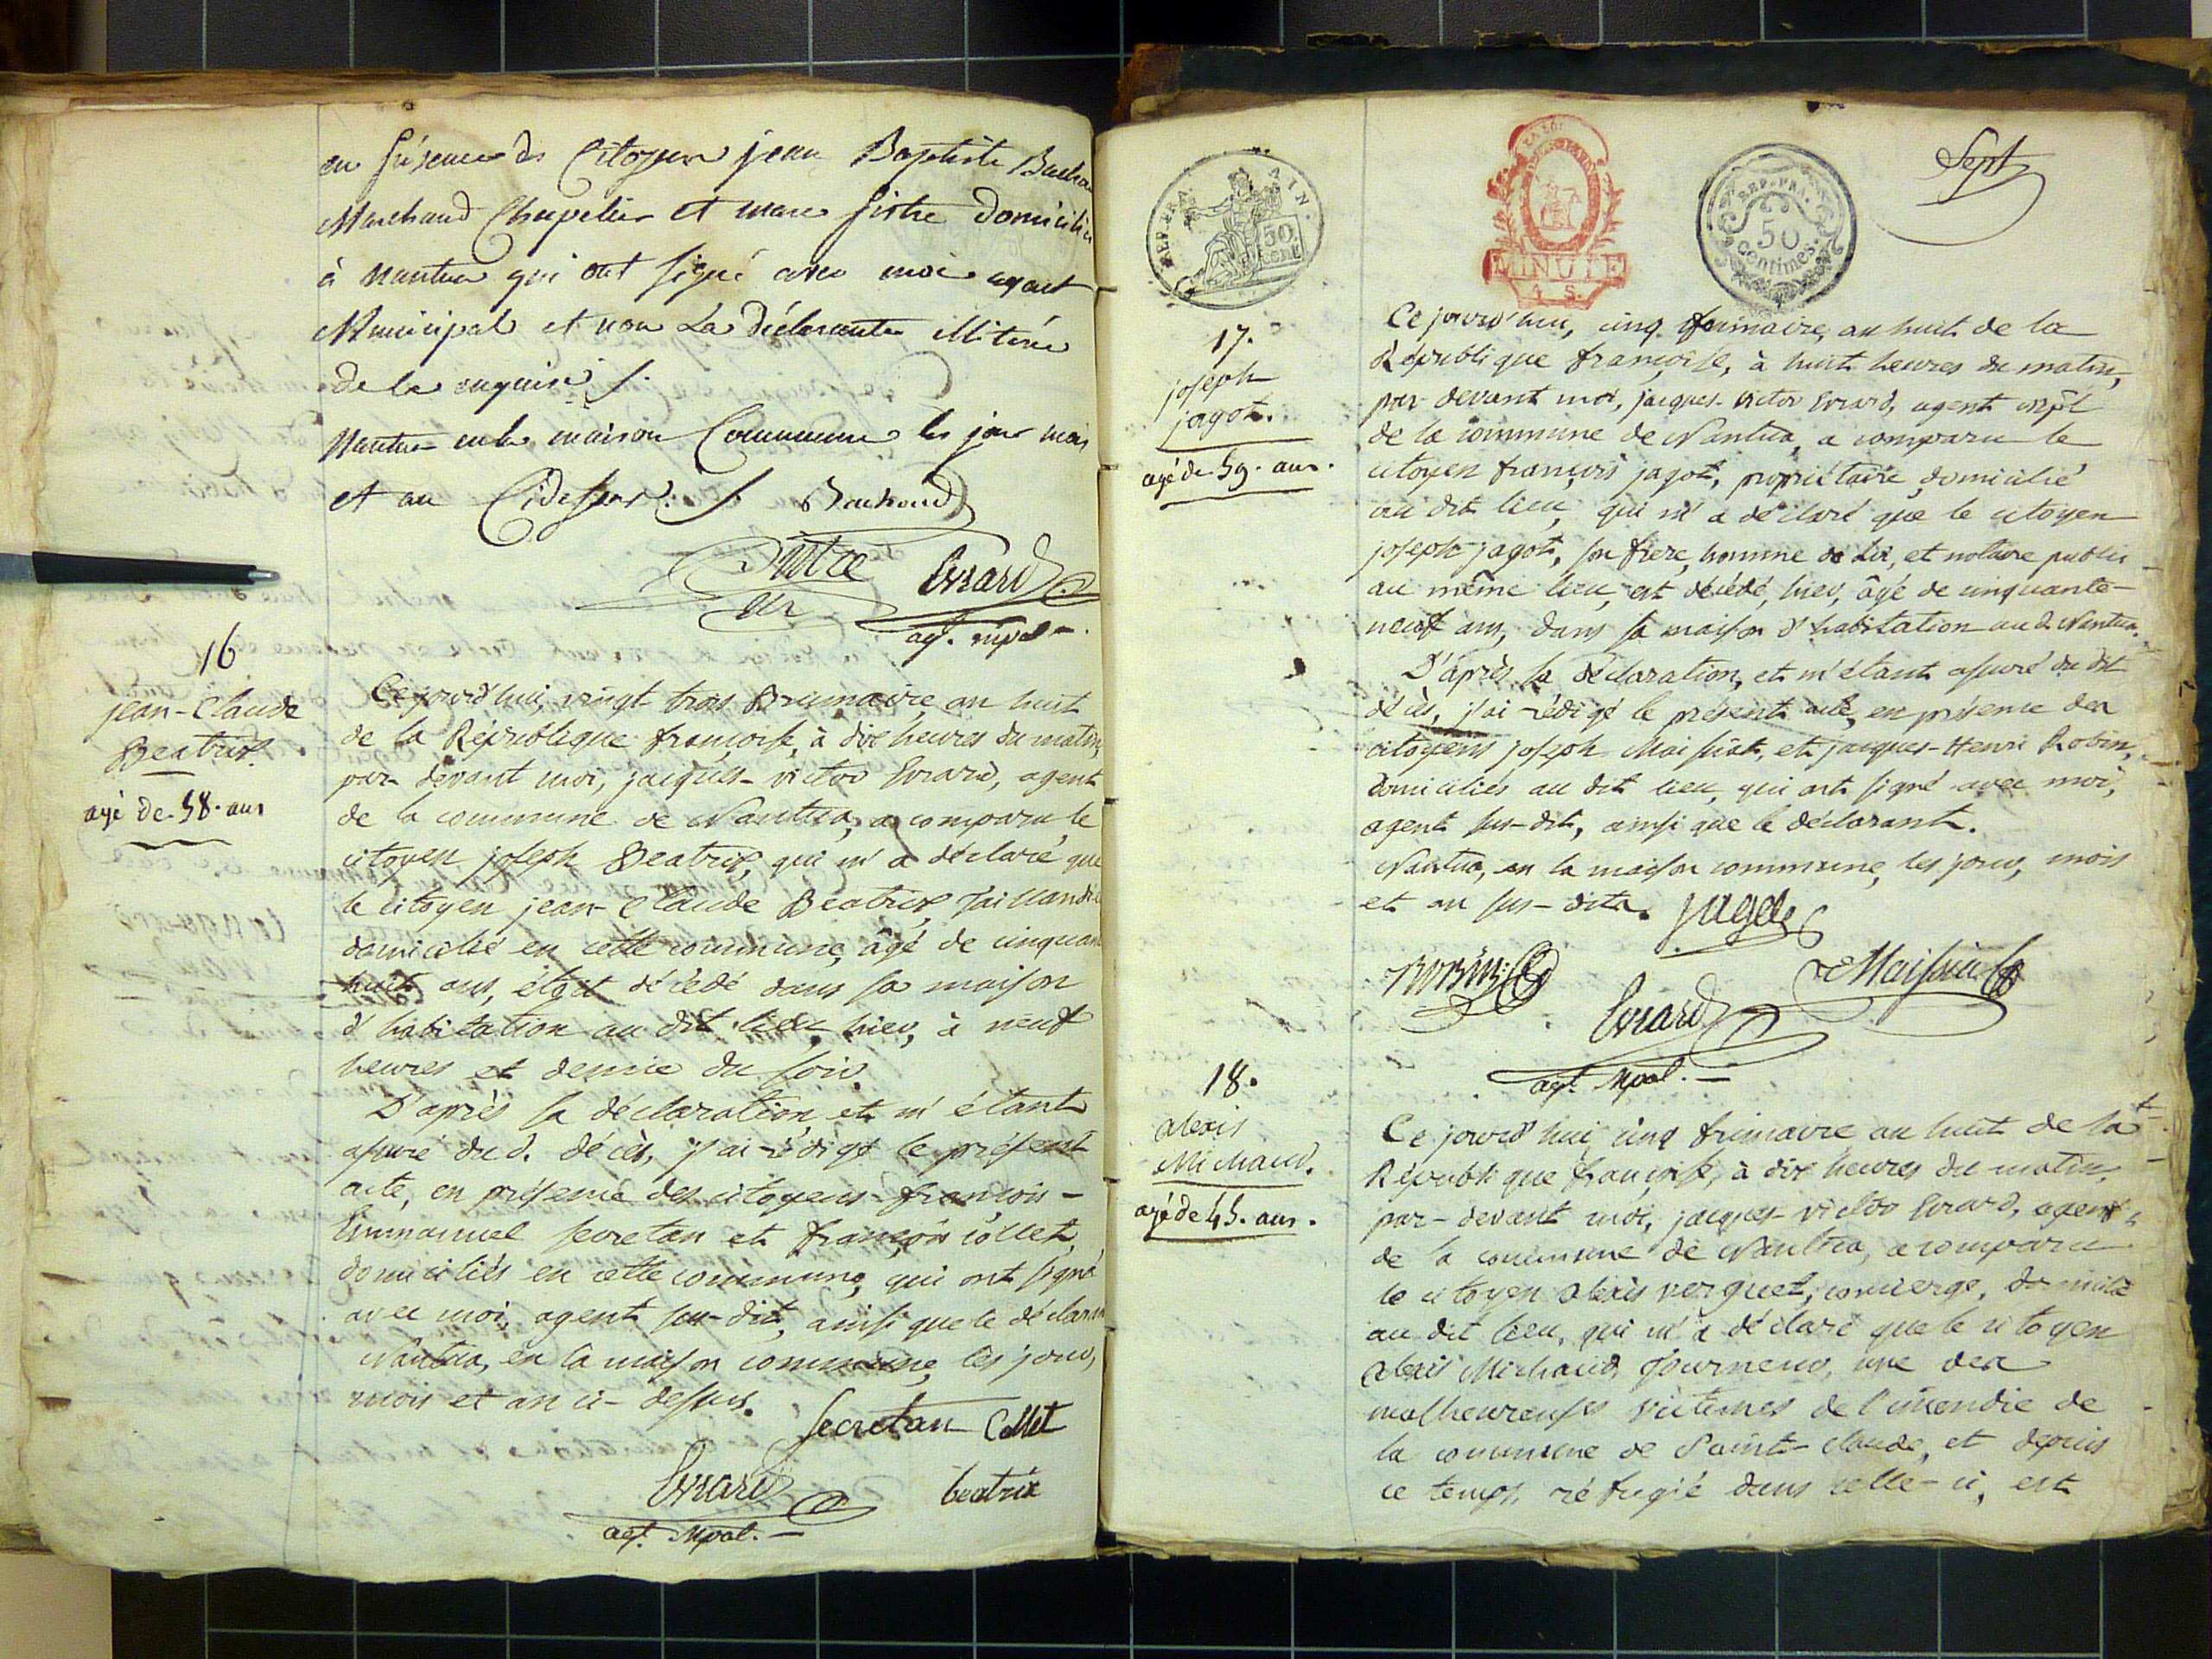 en présence des Citoyens jean Baptiste
Marchand Chapelier et marc domicilié
à Nantua qui ont signé avec moi agent
Municipal et non La déclarante illitérée
de la enquise /.
Nantua en la maison Commune les jour mois
et an Cidessus. /. Bachoud
Evrard
agt. mpal.
16
jean-Claude
Beatrix.
agé de 58. ans
Cejourd'hui, vingt trois Brumaire an huit
de la République françoise, à dix heures du matin,
par devant moi, jacques-victor Evrard, agent
de la commune de Nantua, a comparu le
citoyen joseph Beatrix, qui m'a déclaré que
le citoyen jean-Claude Beatrix Taillandie
domicilié en cette commune, âgé de cinquan
huit ans, étoit décédé dans sa maison
d'habitation au dit lieu, hier, à neuf
heures et demie du soir.
D'après sa déclaration, et m'étant
assuré dud. décès, j'ai rédigé le présent
acte, en présence des citoyens françois-
Emmanuel secretan et françois collet,
domiciliés en cette commune, qui ont signé
avec moi, agent sus-dit, ainsi que le déclaran
Nantua, en la maison commune, les jour,
mois et an ci-dessus.
Secretan Collet
Evrard beatrix
agt. Mpal.
REP. FRA. AIN.
50 cent
MINUTE
REP. FRA.
50
Centimes.
Sept
17.
joseph
jagot.
agé de 59. ans.
Ce jourd'hui, cinq frimaire, an huit de la
République françoise, à huit heures du matin,
par devant moi, jacques-victor Evrard, agent mpal
de la commune de Nantua, a comparu le
citoyen françois jagot, propriétaire, domicilié
au dit lieu, qui m'a déclaré que le citoyen
joseph jagot, son frere, homme de Loi, et notaire public
au même lieu, est décédé, hier, âgé de cinquante-
neuf ans, dans sa maison d'habitation aud. Nantua.
D'après sa déclaration, et m'étant assuré du dit
décès, j'ai rédigé le présent acte, en présence des
citoyens joseph Maissiat, et jacques-Henri Robin,
domiciliés au dit lieu, qui ont signé avec moi,
agent sus-dit, ainsi que le déclarant.
Nantua, en la maison commune, les jour, mois
et an sus-dits. jagot
Robin Maissiat
Evrard
agt. Mpal.
18.
alexis
Michaud.
agé de 45. ans.
Ce jourd'hui, cinq frimaire an huit de la
République françoise, à dix heures du matin,
par-devant moi, jacques-victor Evrard, agent
de la commune de Nantua, a comparu
le citoyen alexis verguet, concierge, domicilié
au dit lieu, qui m'a déclaré que le citoyen
alexis Michaud, Tourneur, une des
malheureuses victimes de l'incendie de
la commune de Saint-Claude, et depuis
ce temps, réfugié dans celle-ci, est